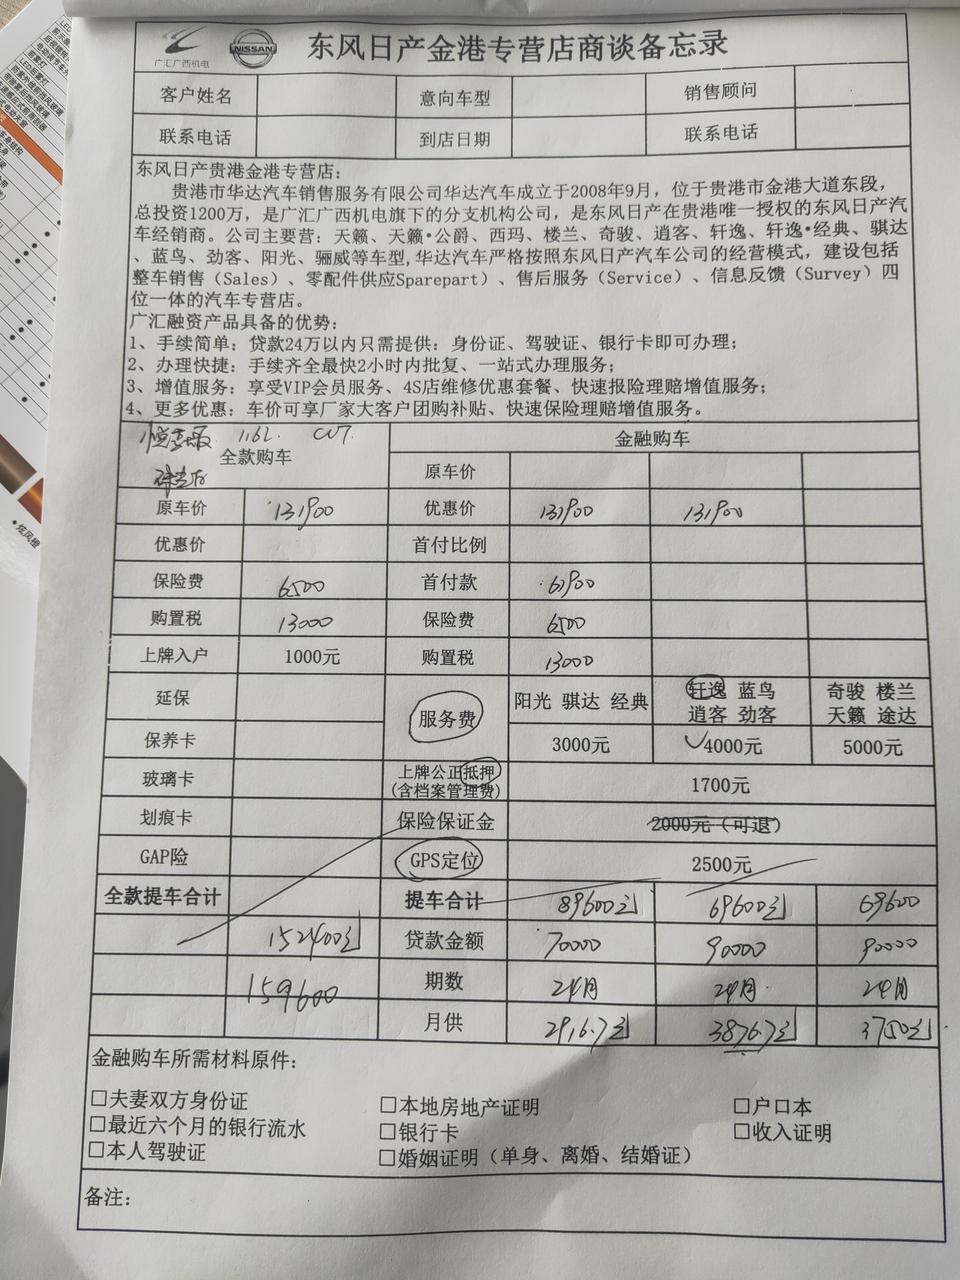 广汇广西机电 NISSAN 东风日产金港专营店商谈备忘录
客户姓名 意向车型 销售顾问
联系电话 到店日期 联系电话
东风日产贵港金港专营店：
贵港市华达汽车销售服务有限公司华达汽车成立于2008年9月，位于贵港市金港大道东段，
总投资1200万，是广汇广西机电旗下的分支机构公司，是东风日产在贵港唯一授权的东风日产汽
车经销商。公司主要营：天籁、天籁•公爵、西玛、楼兰、奇骏、逍客、轩逸、轩逸•经典、骐达
、蓝鸟、劲客、阳光、骊威等车型，华达汽车严格按照东风日产汽车公司的经营模式，建设包括
整车销售（Sales）、零配件供应Sparepart）、售后服务（Service）、信息反馈（Survey）四
位一体的汽车专营店。
广汇融资产品具备的优势：
1、手续简单：贷款24万以内只需提供：身份证、驾驶证、银行卡即可办理；
2、办理快捷：手续齐全最快2小时内批复、一站式办理服务；
3、增值服务：享受VIP会员服务、4S店维修优惠套餐、快速报险理赔增值服务；
4、更多优惠：车价可享厂家大客户团购补贴、快速保险理赔增值服务。
1.6L CVT
全款购车 金融购车
原车价
原车价 131900 优惠价 131900 131900
优惠价 首付比例
保险费 6500 首付款 61900
购置税 13000 保险费 6500
上牌入户 1000元 购置税 13000
延保 服务费 阳光 骐达 经典 轩逸 蓝鸟 逍客 劲客 奇骏 楼兰 天籁 途达
保养卡 3000元 4000元 5000元
玻璃卡 上牌公正抵押（含档案管理费） 1700元
划痕卡 保险保证金 2000元（可退）
GAP险 GPS定位 2500元
全款提车合计 提车合计 89600元 69600元 69600
152400元 贷款金额 70000 90000 90000
159600 期数 24月 24月 24月
月供 2916.7元 3876.7元 3750元
金融购车所需材料原件：
□夫妻双方身份证 □本地房地产证明 □户口本
□最近六个月的银行流水 □银行卡 □收入证明
□本人驾驶证 □婚姻证明（单身、离婚、结婚证）
备注：
•炫风橙